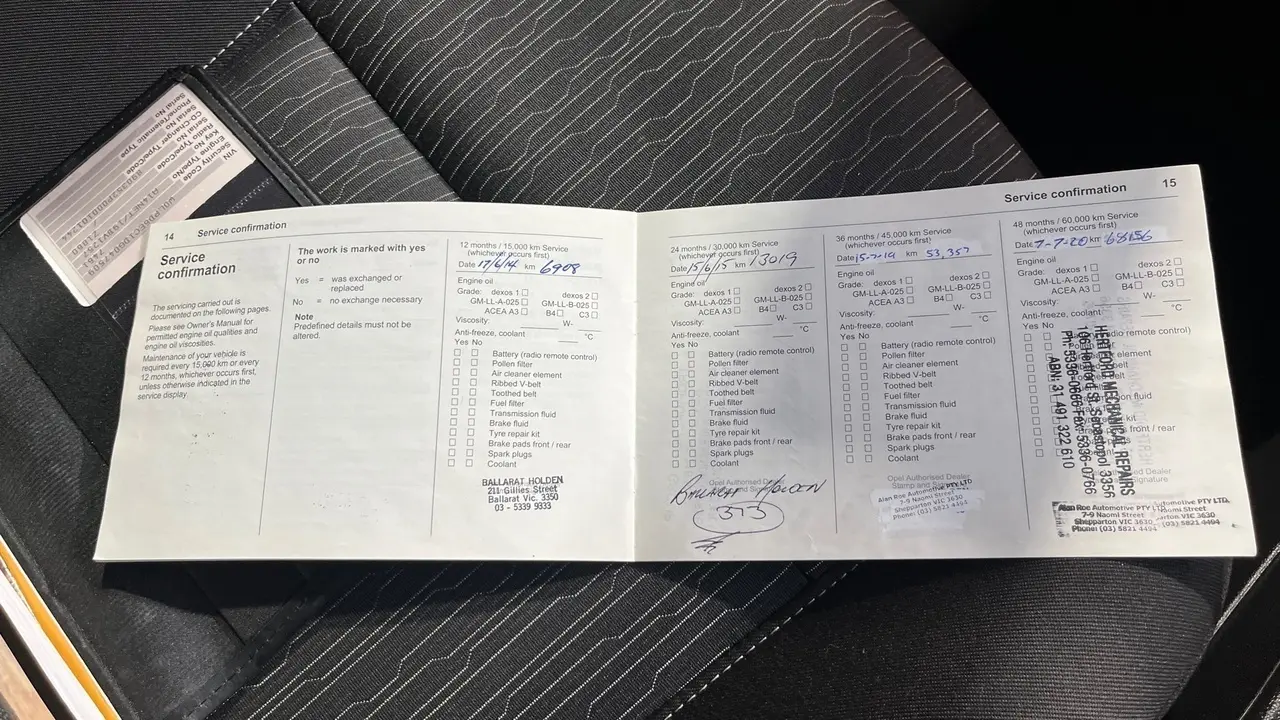 14 Service confirmation
Service
confirmation
The servicing carried out is
documented on the following pages.
Please see Owner's Manual for
permitted engine oil qualities and
engine oil viscosities.
Maintenance of your vehicle is
required every 15,000 km or every
12 months, whichever occurs first,
unless otherwise indicated in the
service display.
The work is marked with yes
or no
Yes = was exchanged or
replaced
No = no exchange necessary
Note
Predefined details must not be
altered.
12 months / 15,000 km Service
(whichever occurs first)
Date 17/6/14 km 6908
Engine oil
Grade: dexos 1 dexos 2
GM-LL-A-025 GM-LL-B-025
ACEA A3 B4 C3
Viscosity: W-
Anti-freeze, coolant °C
Yes No
Battery (radio remote control)
Pollen filter
Air cleaner element
Ribbed V-belt
Toothed belt
Fuel filter
Transmission fluid
Brake fluid
Tyre repair kit
Brake pads front / rear
Spark plugs
Coolant
BALLARAT HOLDEN
211 Gillies Street
Ballarat Vic. 3350
03 - 5339 9333
Service confirmation 15
24 months / 30,000 km Service
(whichever occurs first)
Date 15/6/15 km 13019
Engine oil
Grade: dexos 1 dexos 2
GM-LL-A-025 GM-LL-B-025
ACEA A3 B4 C3
Viscosity: W-
Anti-freeze, coolant °C
Yes No
Battery (radio remote control)
Pollen filter
Air cleaner element
Ribbed V-belt
Toothed belt
Fuel filter
Transmission fluid
Brake fluid
Tyre repair kit
Brake pads front / rear
Spark plugs
Coolant
Opel Authorised
Ballarat Holden
373
36 months / 45,000 km Service
(whichever occurs first)
Date 15-7-19 km 53,357
Engine oil
Grade: dexos 1 dexos 2
GM-LL-A-025 GM-LL-B-025
ACEA A3 B4 C3
Viscosity: W-
Anti-freeze, coolant °C
Yes No
Battery (radio remote control)
Pollen filter
Air cleaner element
Ribbed V-belt
Toothed belt
Fuel filter
Transmission fluid
Brake fluid
Tyre repair kit
Brake pads front / rear
Spark plugs
Coolant
Opel Authorised Dealer
Stamp and
Alan Roe Automotive PTY LTD
7-9 Naomi Street
Shepparton VIC 3630
Phone: (03) 5821 4494
48 months / 60,000 km Service
(whichever occurs first)
Date 7-7-20 km 68156
Engine oil
Grade: dexos 1 dexos 2
GM-LL-A-025 GM-LL-B-025
ACEA A3 B4 C3
Viscosity: W-
Anti-freeze, coolant °C
Yes No
radio remote control)
element
belt
belt
fluid
kit
front / rear
Dealer
Signature
HERTFORD MECHANICAL REPAIRS
Sebastopol 3356
Fax: 5336-0766
ABN: 31 491 322 610
Alan Roe Automotive PTY LTD
7-9 Naomi Street
Shepparton VIC 3630
Phone: (03) 5821 4494
VIN
Security Code
Engine Type/No
Key No
Radio Type/Code
Serial No
CD-Changer Type/Code
Serial No
Phone/Telematic Type
Serial No